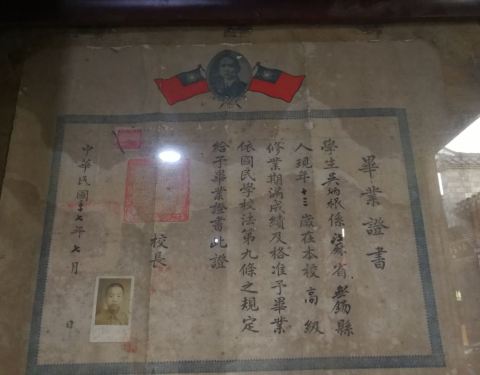 畢業證書
學生吳炳根係江蘇省無錫縣
人現年十三歲在本校高級
修業期滿成績及格准予畢業
依國民學校法第九條之規定
給予畢業證書此證
校長
中華民國三十七年七月 日